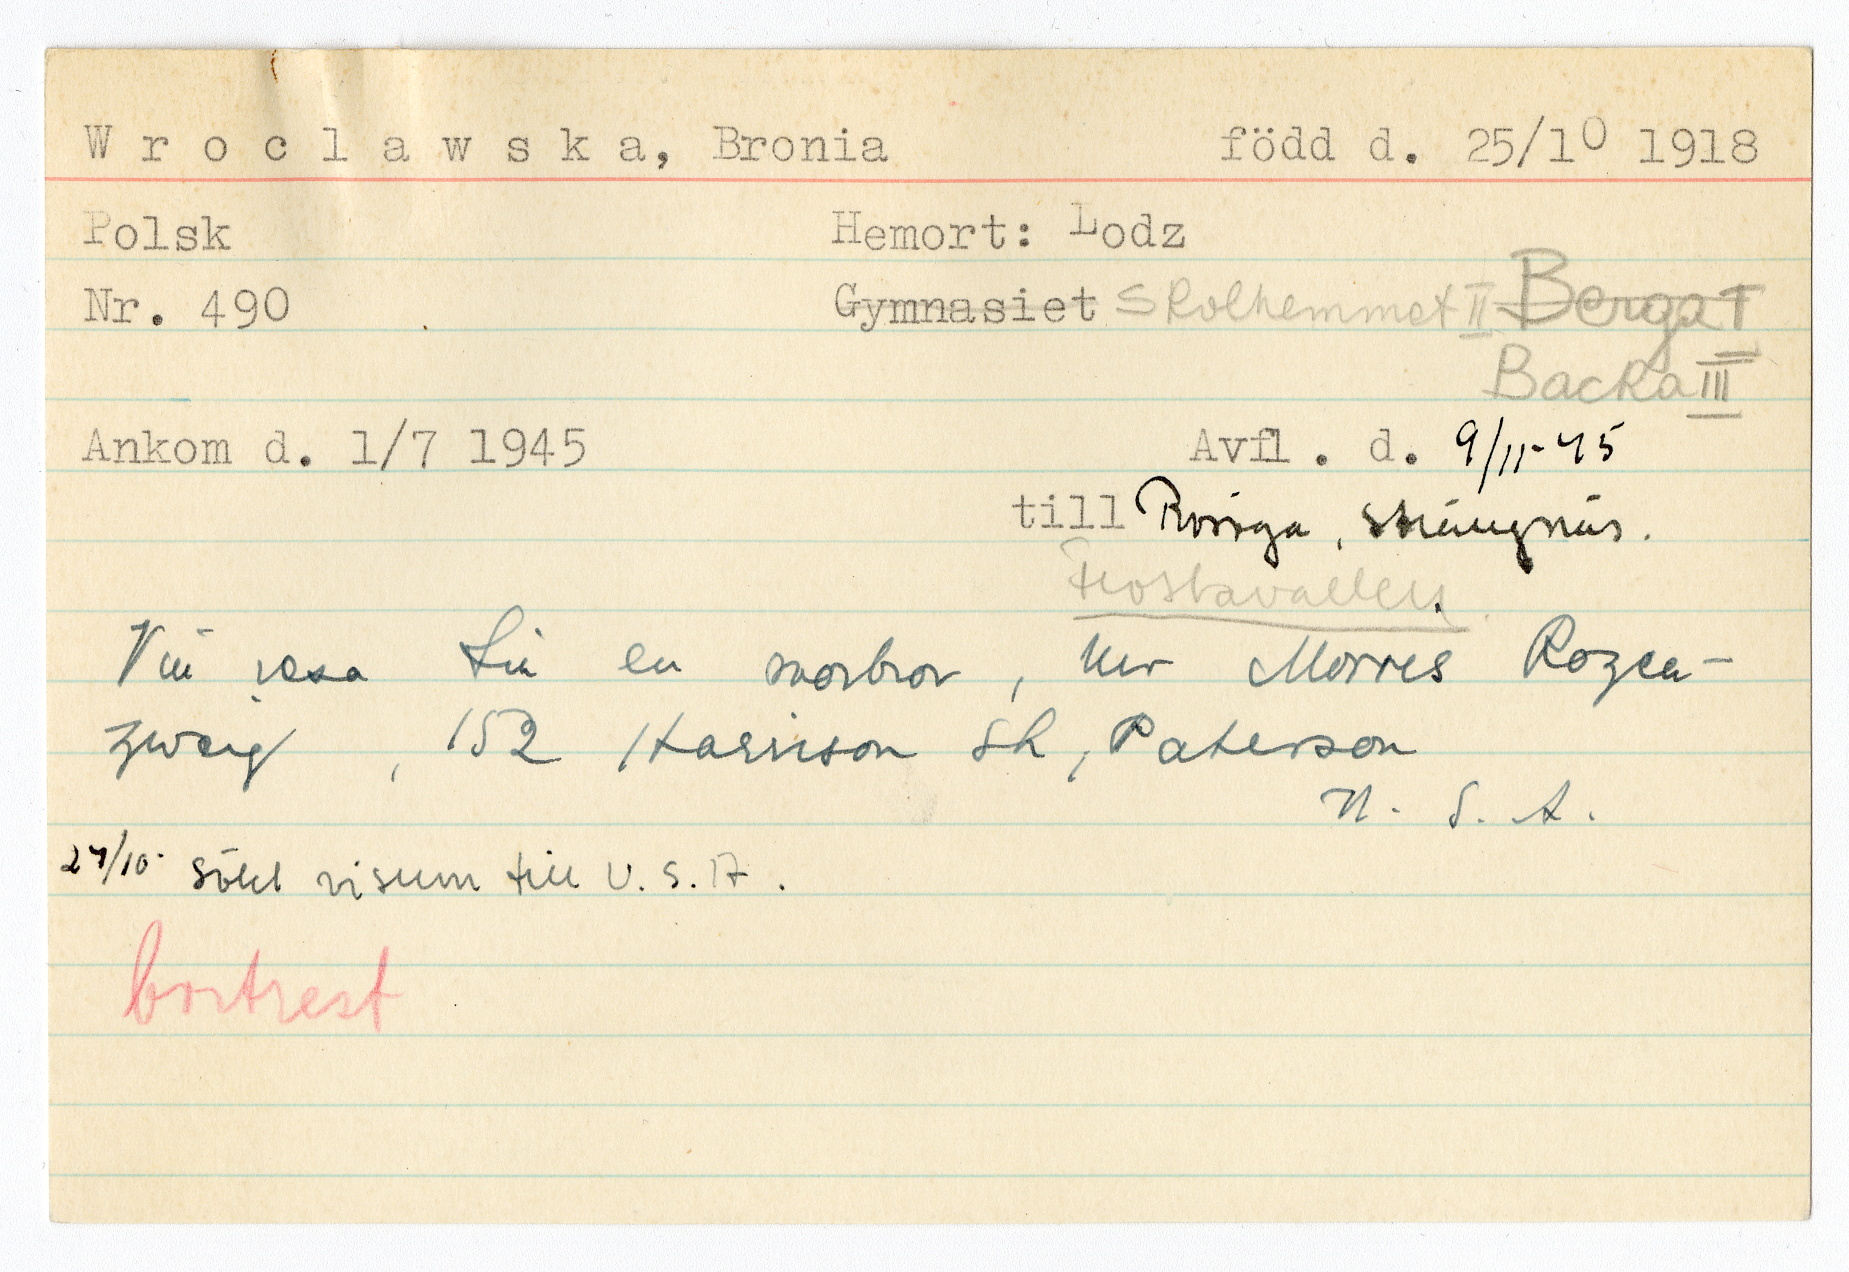 Wroclawska, Bronia född d. 25/10 1918
Polsk Hemort: Lodz
Nr. 490 Gymnasiet Skolhemmet II Berga I
Backa III
Ankom d. 1/7 1945 Avfl. d. 9/11-45
till Rosöga, Strängnäs.
Frostavallen
Vill resa till en morbror, Mr Morres Rozen-
zweig, 152 Harrison Str, Paterson
U. S. A.
27/10 sökt visum till U.S.A.
bortrest